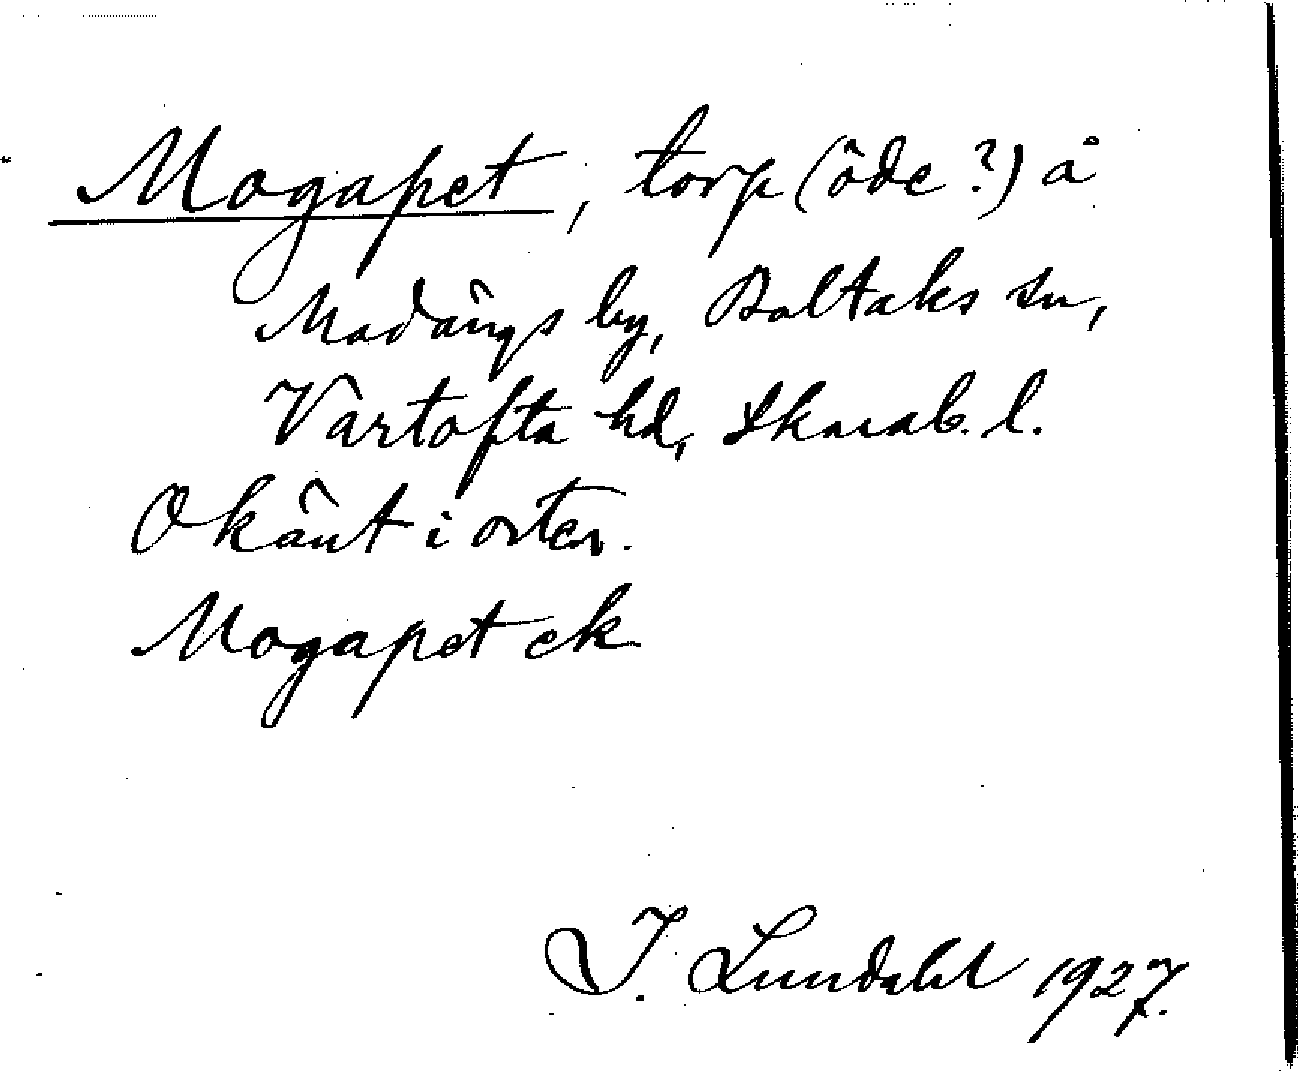 Mogapet, torp (öde?) å
Madängs by, Baltaks sn,
Vartofta hd, Skarab. l.
Okänt i orten.
Mogapet ek
I. Lundahl 1927.